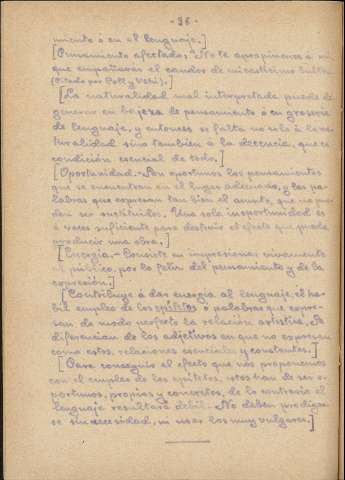 - 38 -
miento ó en el lenguaje.]
[Pensamiento afectado: "No te aproximes á mí
que empañarás el candor de mi castísimo bulto"
(Citado por Coll y Vehí).]
[La naturalidad mal interpretada puede de-
generar en bajeza de pensamiento ó en grosería
de lenguaje, y entonces se falta no solo á la na-
turalidad sino también á la decencia, que es
condición esencial de todo.]
[Oportunidad.- Son oportunos los pensamientos
que se encuentran en el lugar adecuado, y las pa-
labras que expresan tan bien el asunto, que no pue-
den ser sustituidas. Una sola inoportunidad es
á veces suficiente para destruir el efecto que pueda
producir una obra.]
[Energía.- Consiste en impresionar vivamente
al público, por la feliz del pensamiento y de la
expresión.]
[Contribuye á dar energía al lenguaje, el há-
bil empleo de los epítetos ó palabras que expre-
san de modo perfecto la relación artística. Se
diferencian de los adjetivos en que no expresan
como estos, relaciones esenciales y constantes.]
[Para conseguir el efecto que nos proponemos
con el empleo de los epítetos, estos han de ser o-
portunos, propios y concretos, de lo contrario el
lenguaje resultará débil. No deben prodigar-
se sin necesidad, ni usar los muy vulgares.]